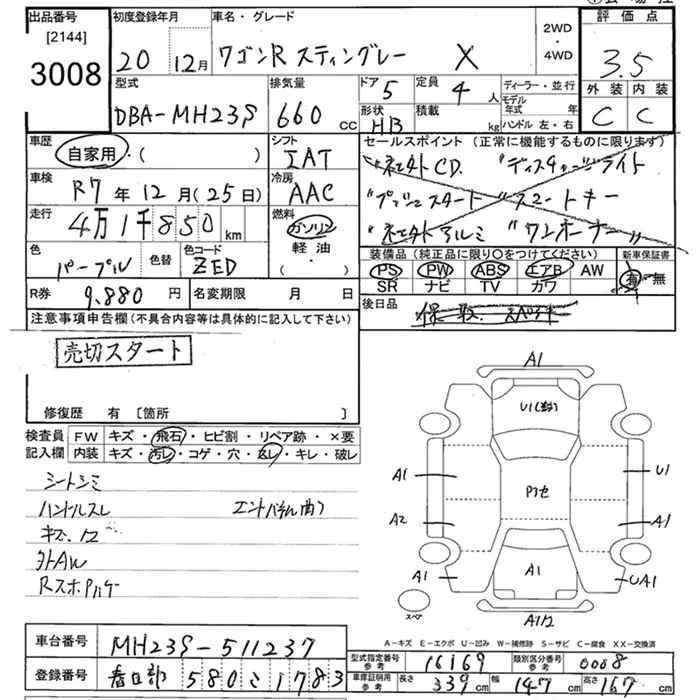 出品番号 初度登録年月 車名・グレード 2WD・4WD 評価点
[2144]
3008 20 12月 ワゴンR スティングレー X 3.5
型式 排気量 ドア 5 定員 4人 ディーラー・並行 外装 内装
DBA-MH23S 660cc 形状 HB 積載 kg モデル年式 年 ハンドル 左・右 C C
車歴 自家用・( ) シフト IAT セールスポイント (正常に機能するものに限ります)
"社外CD. "ディスチャージライト
車検 R7年12月(25日) 冷房 AAC "プッシュスタート "スマートキー
走行 4万1千850km 燃料 ガソリン 軽油・( ・ ) "社外アルミ "ワンオーナー"
色 パープル 色替 色コード ZED 装備品 (純正品に限り○をつけてください) 新車保証書
PS PW ABS エアB AW 有・無
SR ナビ TV カワ
R券 9,880円 名変期限 月 日 後日品
注意事項申告欄(不具合内容等は具体的に記入して下さい)
売切スタート
修復歴 有 [箇所 ]
検査員 FW キズ・飛石・ヒビ割・リペア跡・×要
記入欄 内装 キズ・汚レ・コゲ・穴・スレ・キレ・破レ
シートシミ
ハンドルスレ
キズ、凹
外AW
A1
A1
U1
A1
A2
A1
A1
A1
UA1
スペア
A-キズ E-エクボ U-凹み W-補修跡 S-サビ C-腐食 XX-交換済
車台番号 MH23S-511237
型式指定番号 参考 16169 類別区分番号 参考 0008
登録番号 春日部 580 1783
車庫証明用 参考 長さ 339cm 幅 147cm 高さ 167cm